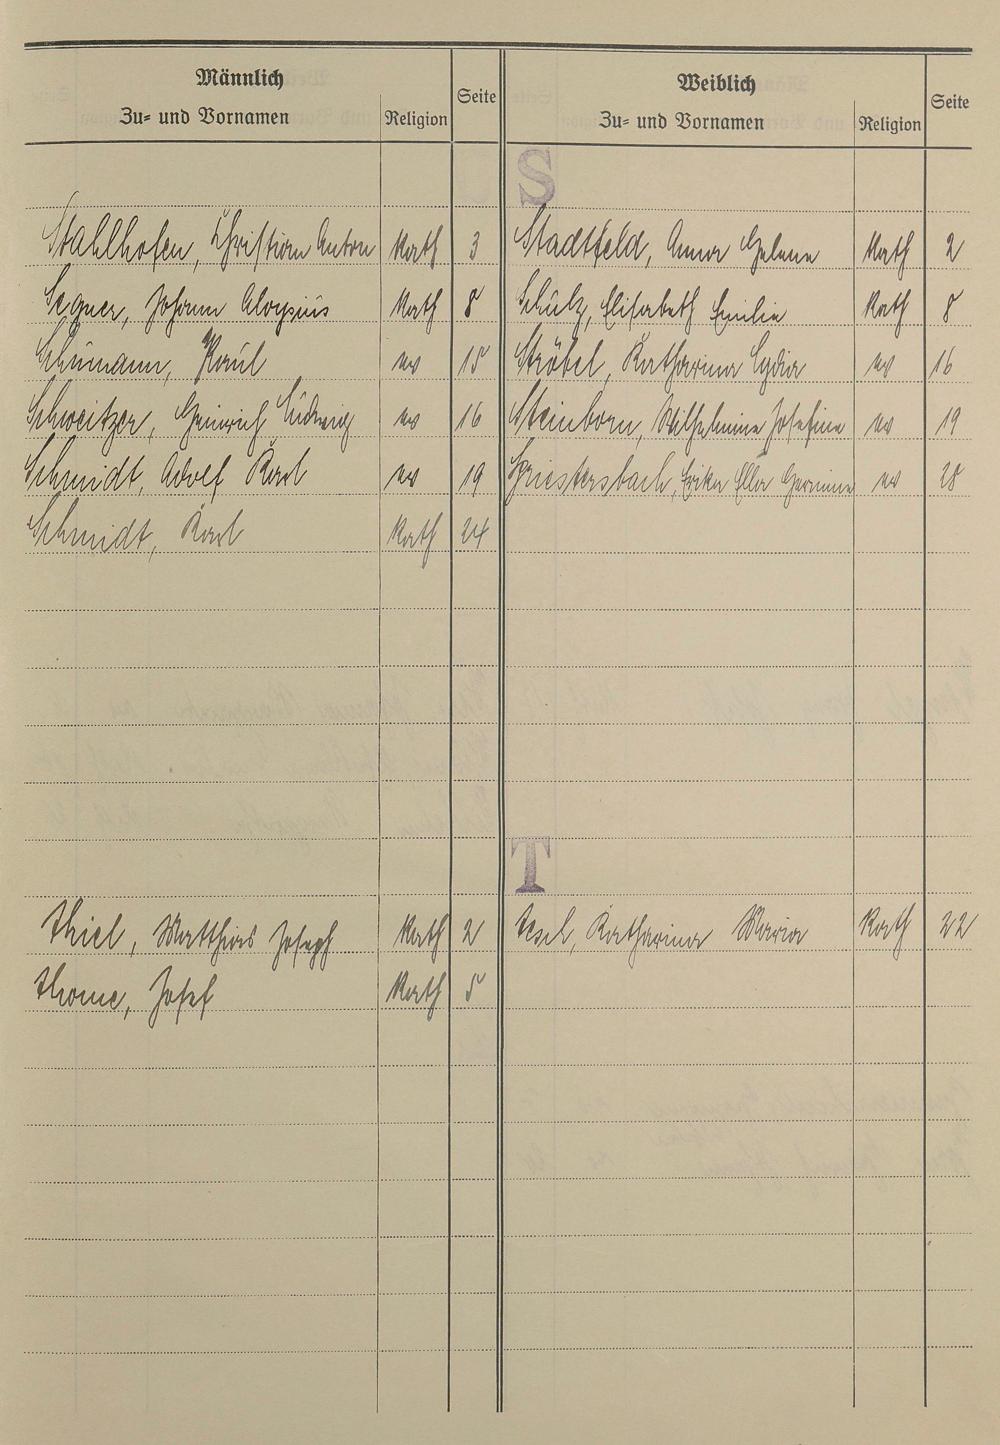 Männlich
Zu- und Vornamen
Religion
Seite
Weiblich
Zu- und Vornamen
Religion
Seite
S
Stahlhofen, Christian Anton kath 3
Stadtfeld, Anna Helene kath 2
Segner, Johann Aloysius kath 8
Schulz, Elisabeth Emilie kath 8
Schumann, Paul ev 15
Ströbel, Katharina Lydia ev 16
Schweitzer, Heinrich Ludwig ev 16
Steinborn, Wilhelmine Josefine ev 19
Schmidt, Adolf Karl ev 19
Spriestersbach, Erika Ella Hermine ev 28
Schmidt, Karl kath 24
T
Thiel, Matthias Joseph kath 2
Katharina Maria kath 22
Thome, Josef kath 5